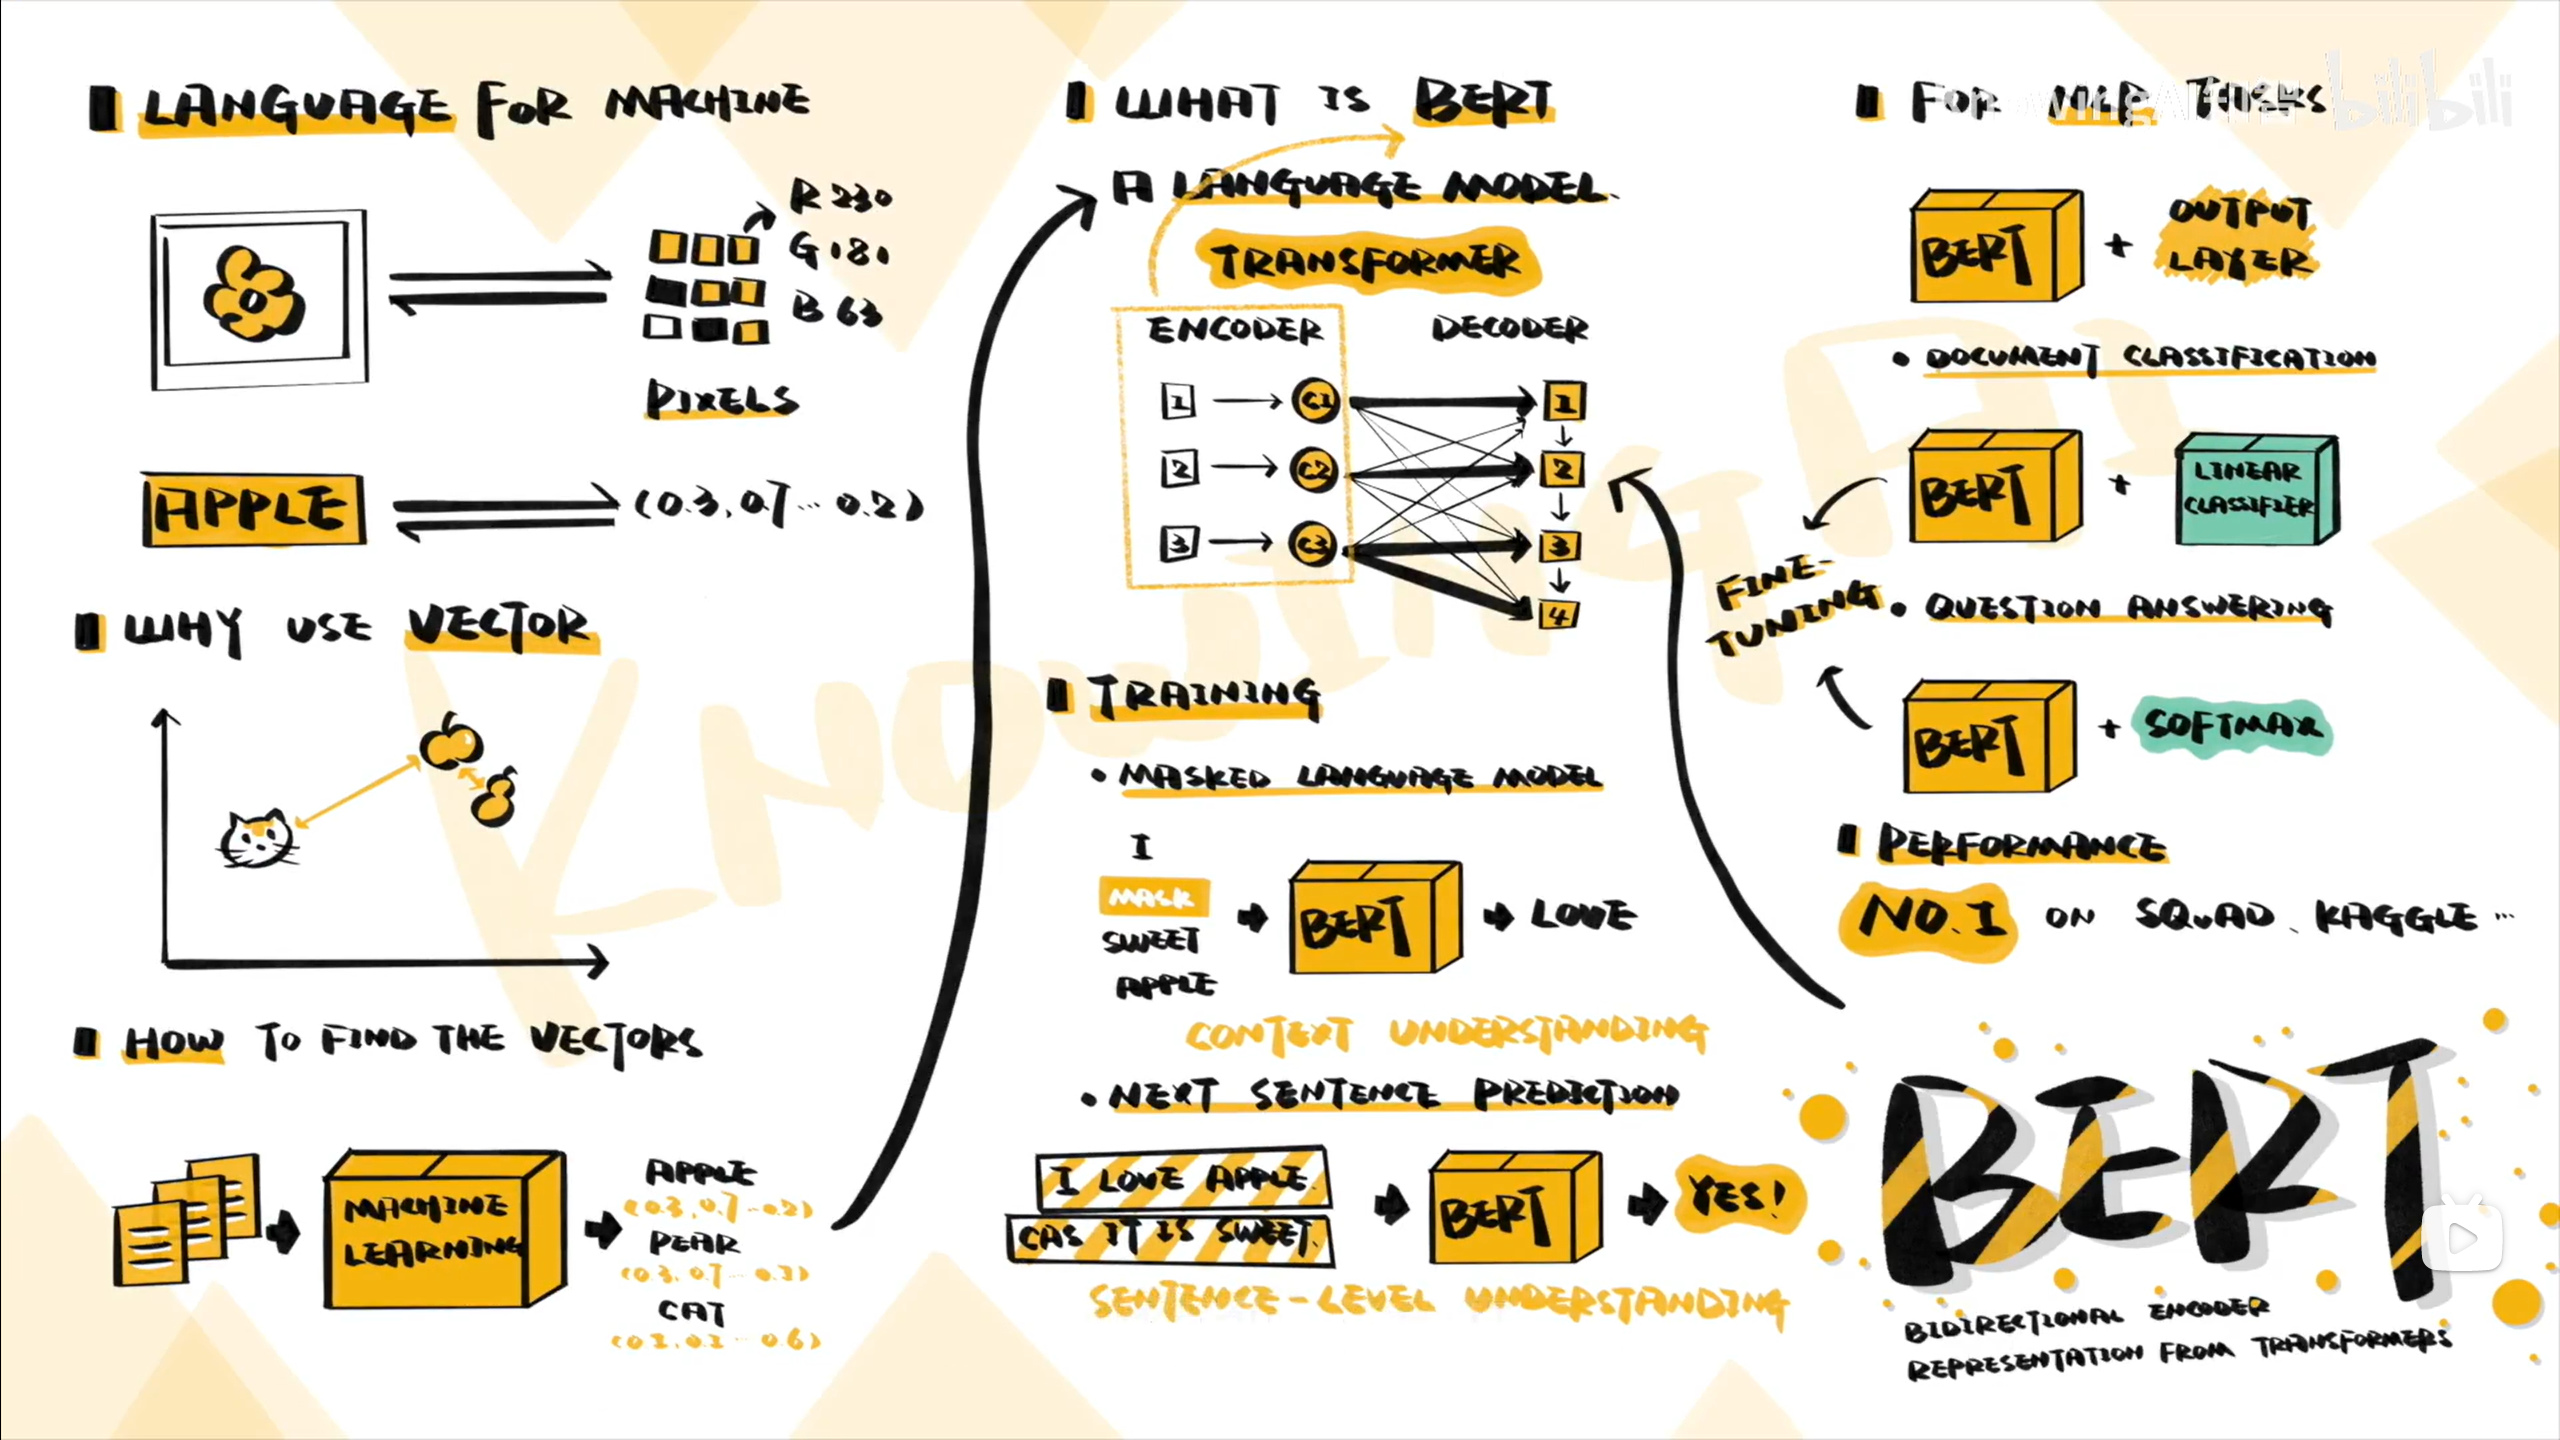 LANGUAGE FOR MACHINE
R 230
G 181
B 63
PIXELS
APPLE
(0.3, 0.7 ... 0.2)
WHY USE VECTOR
HOW TO FIND THE VECTORS
MACHINE
LEARNING
APPLE
(0.3, 0.7 ... 0.2)
PEAR
(0.3, 0.7 ... 0.3)
CAT
(0.1, 0.1 ... 0.6)
WHAT IS BERT
A LANGUAGE MODEL.
TRANSFORMER
ENCODER
DECODER
1 C1 1
2 C2 2
3 C3 3
4
TRAINING
• MASKED LANGUAGE MODEL
I
MASK
SWEET
APPLE
BERT
LOVE
CONTEXT UNDERSTANDING
• NEXT SENTENCE PREDICTION
I LOVE APPLE.
CAS IT IS SWEET.
BERT
YES!
SENTENCE-LEVEL UNDERSTANDING
FOR NLP TASKS
bilibili
BERT + OUTPUT
LAYER
• DOCUMENT CLASSIFICATION
BERT + LINEAR
CLASSIFIER
FINE-
TUNING
• QUESTION ANSWERING
BERT + SOFTMAX
PERFORMANCE
NO. 1 ON SQUAD, KAGGLE ...
BERT
BIDIRECTIONAL ENCODER
REPRESENTATION FROM TRANSFORMERS
KNOWINGAI